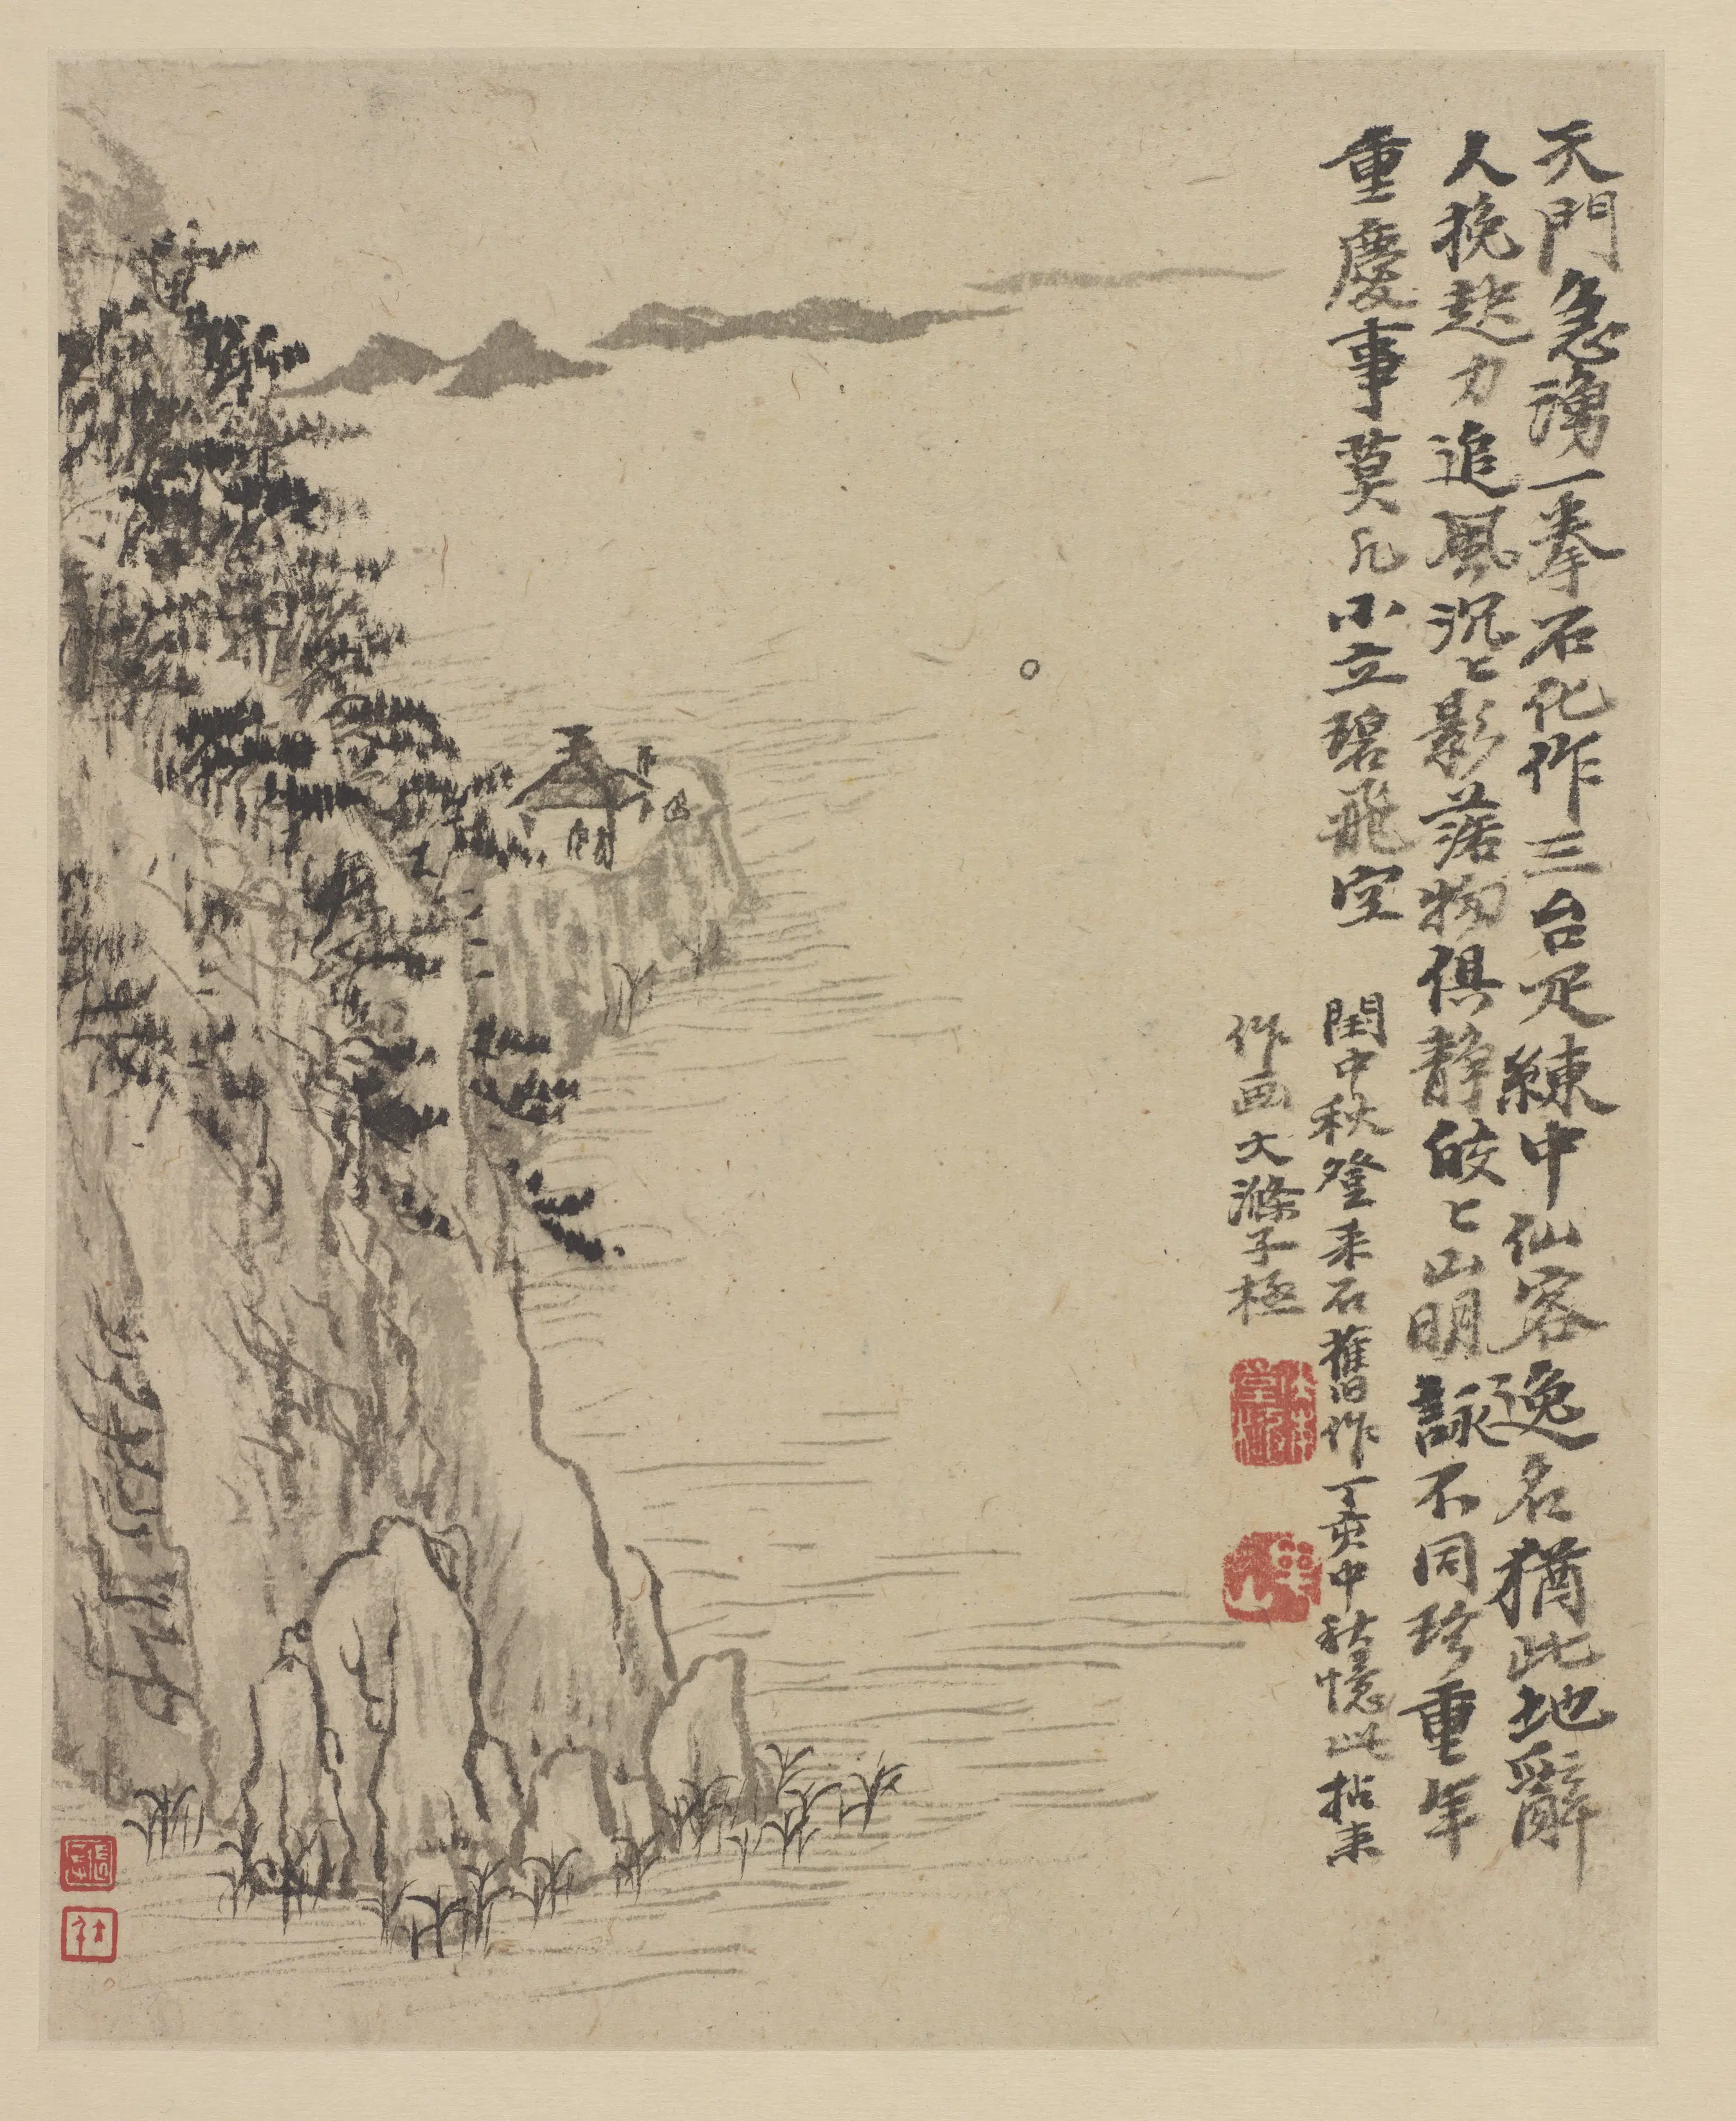 天門急湧一拳石化作三台足練中仙客逸名猶此地辭
人挽起力追風沉〻影落物俱静皎〻山明詠不同珍重年
重慶事莫凡小立碧飛空
閏中秋登采石舊作丁亥中秋憶此拈来
作画大滌子極